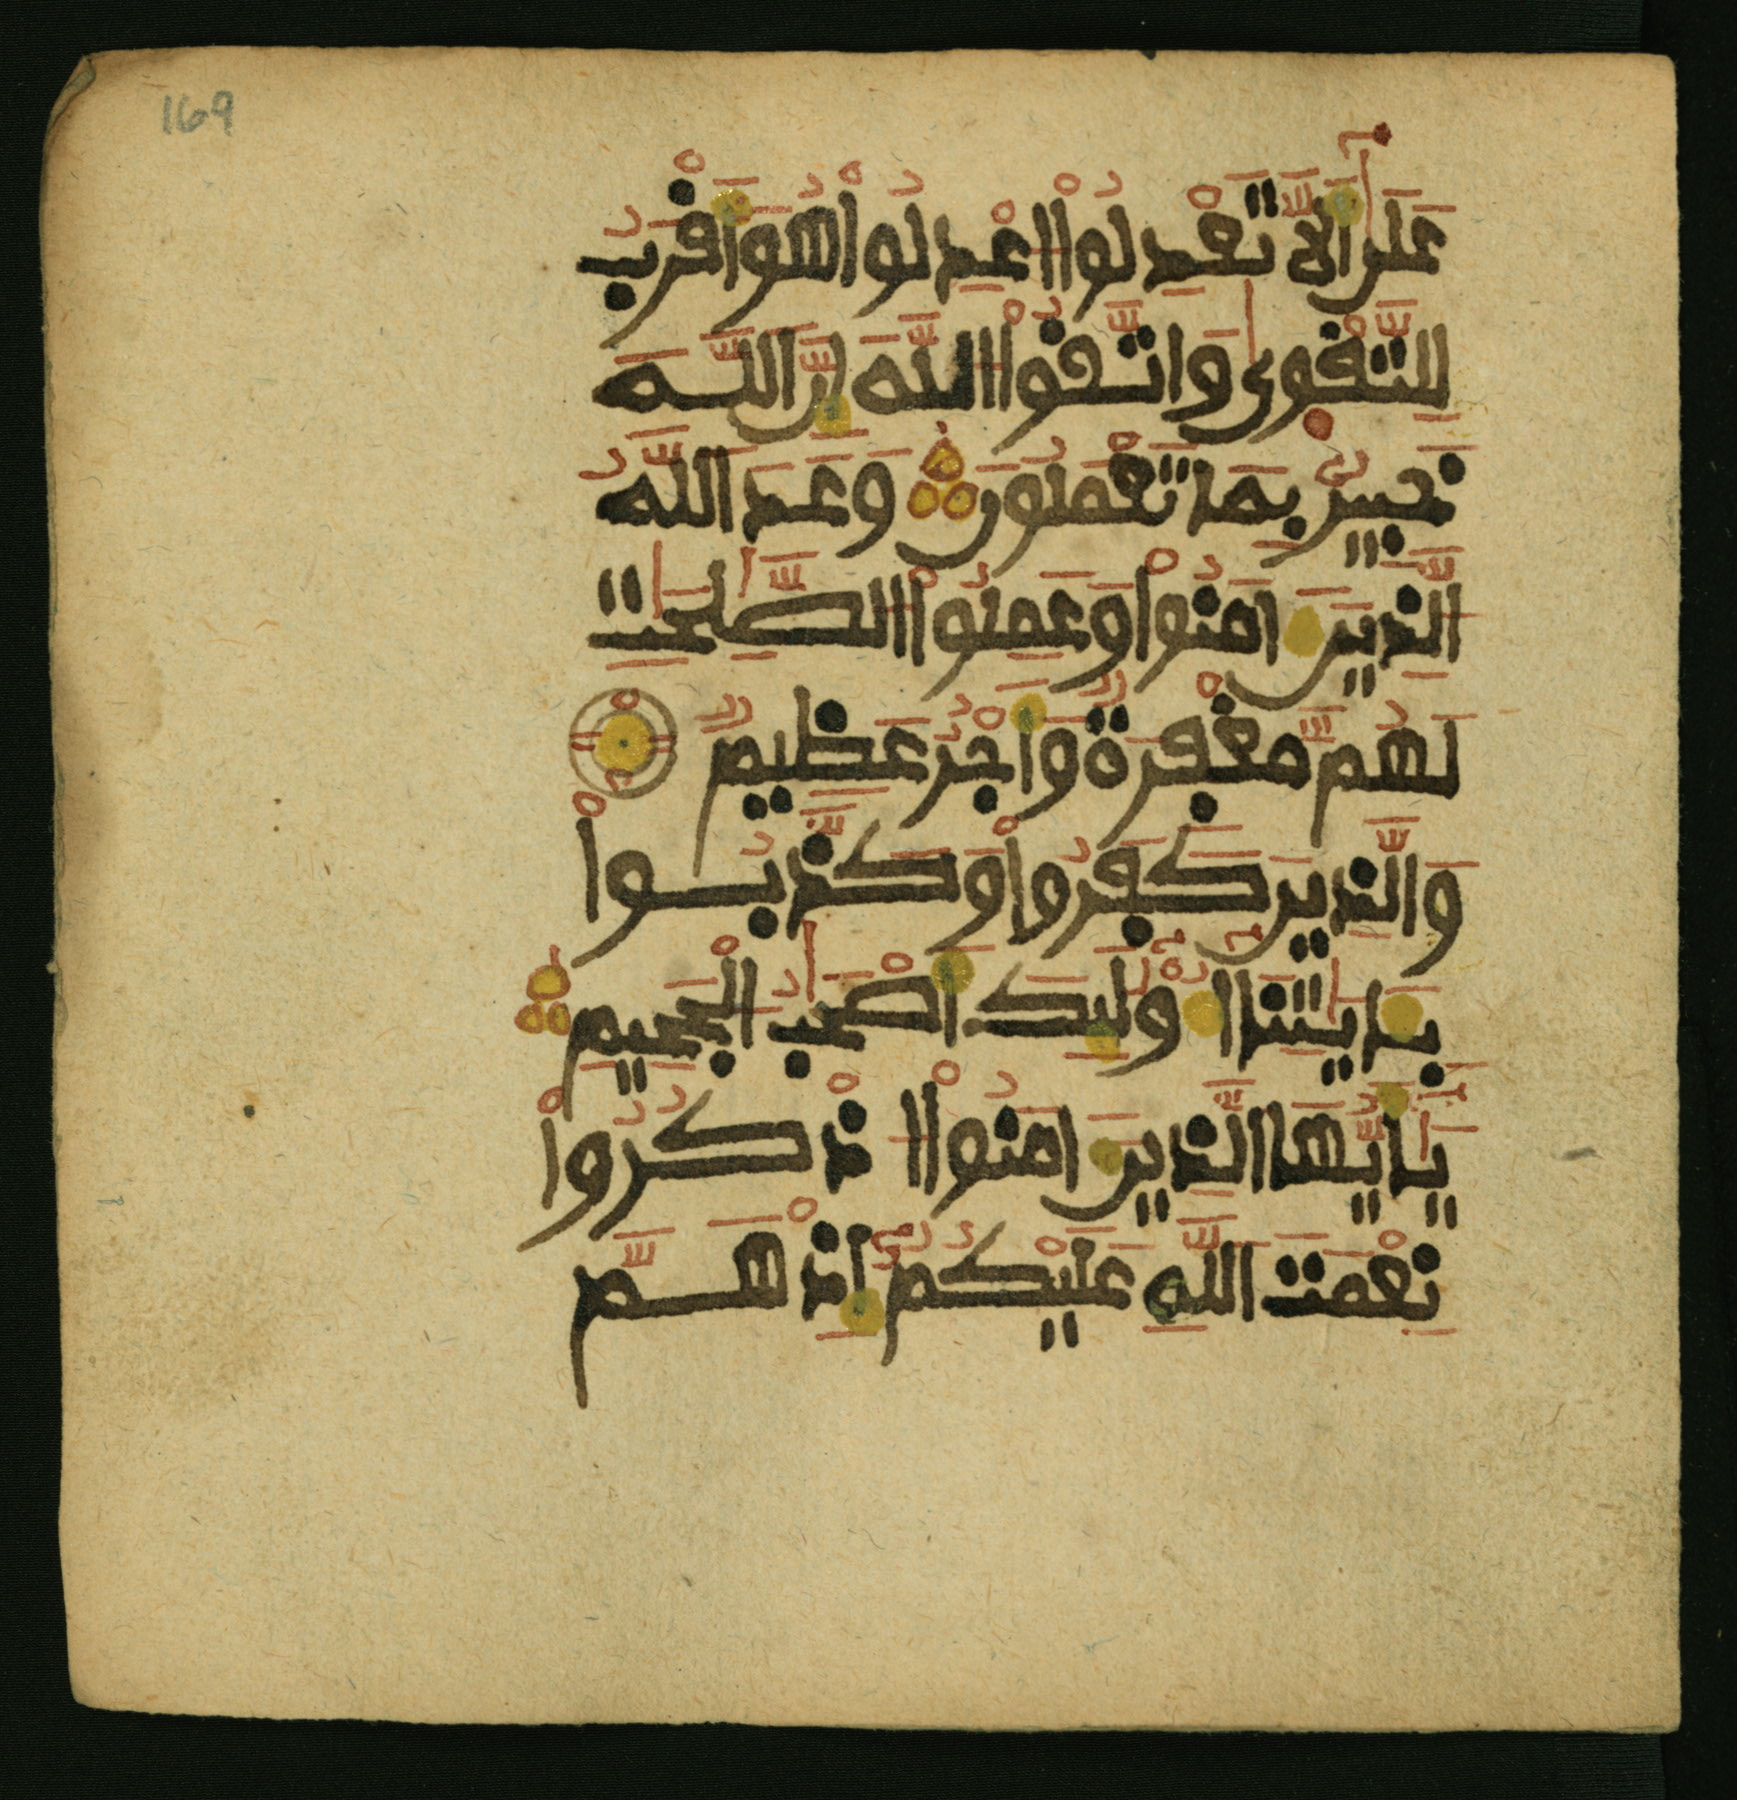 169
عَلَىٰ أَلَّا تَعْدِلُواْ اعْدِلُواْ هُوَ أَقْرَبُ
لِلتَّقْوَىٰ وَاتَّقُواْ اللَّهَ إِنَّ اللَّهَ
خَبِيرٌ بِمَا تَعْمَلُونَ وَعَدَ اللَّهُ
الَّذِينَ ءَامَنُواْ وَعَمِلُواْ الصَّٰلِحَٰتِ
لَهُم مَّغْفِرَةٌ وَأَجْرٌ عَظِيمٌ
وَالَّذِينَ كَفَرُواْ وَكَذَّبُواْ
بِـَٔايَٰتِنَا أُوْلَٰئِكَ أَصْحَٰبُ الْجَحِيمِ
يَٰأَيُّهَا الَّذِينَ ءَامَنُواْ اذْكُرُواْ
نِعْمَتَ اللَّهِ عَلَيْكُمْ إِذْ هَمَّ